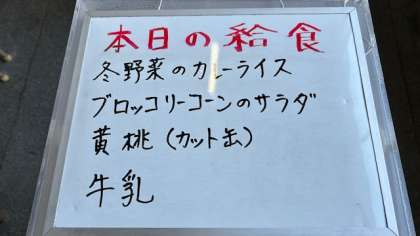 本日の給食
冬野菜のカレーライス
ブロッコリーコーンのサラダ
黄桃(カット缶)
牛乳